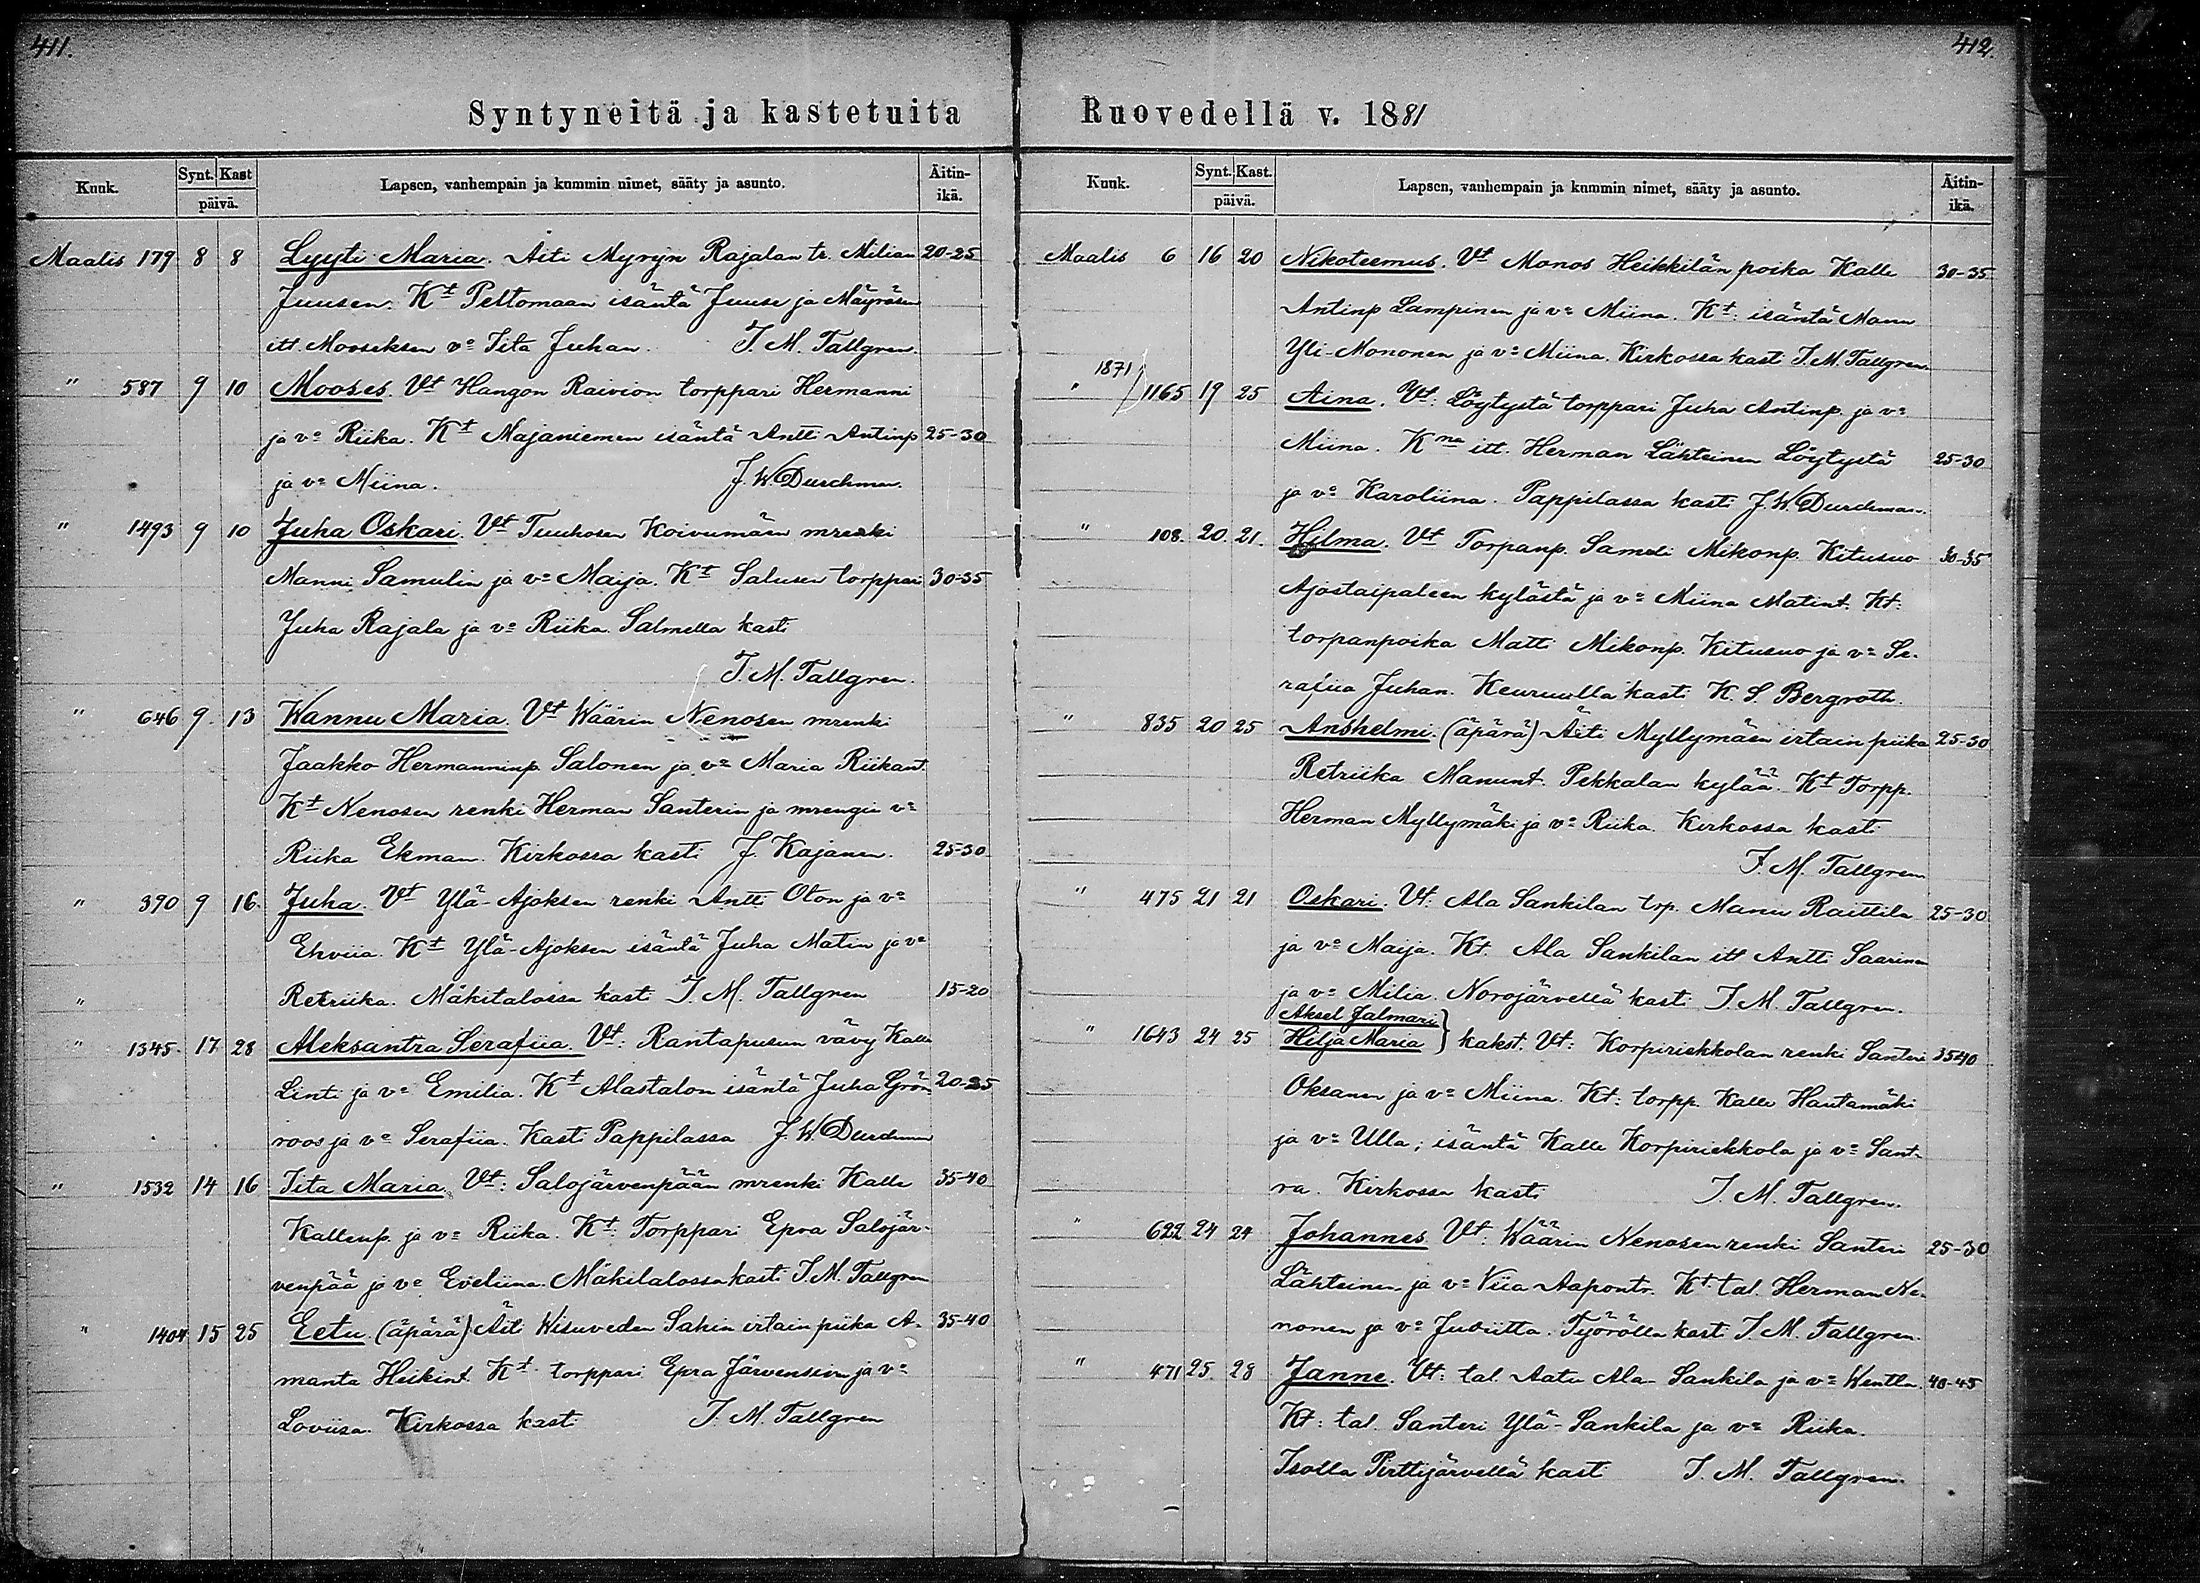 411.
Syntyneitä ja kastetuita
Kuuk. Synt. Kast päivä. Lapsen, vanhempain ja kummin nimet, sääty ja asunto. Äitin- ikä.
Maalis 179 8 8 Lyyti Maria. Äiti Myryn Rajalan tr. Milian 20-25
Juusen. Kt Peltomaan isäntä Juuse ja Mäyräsen
itt. Mooseksen vo Tita Juhan. J. M. Tallgren.
" 587 9 10 Mooses. Vt Hangon Raivion torppari Hermanni
ja vo Riika. Kt Majaniemen isäntä Antti Antinp 25-30
ja vo Miina. J. W. Durchman.
" 1493 9 10 Juha Oskari. Vt Tuuhosen Koivumäen mrenki
Manni Samulin ja vo Maija. Kt Salusen torppari 30-35
Juha Rajala ja vo Riika. Salmella kasti
J. M. Tallgren.
" 646 9. 13 Wannu Maria. Vt Wäärin Nenosen mrenki
Jaakko Hermanninp. Salonen ja vo Maria Riikant.
Kt Nenosen renki Herman Santerin ja mrengin vo
Riika Ekman. Kirkossa kasti J. Kajanen. 25-30
" 390 9 16. Juha. Vt Ylä-Ajoksen renki Antti Oton ja vo
Ehviia. Kt Ylä-Ajoksen isäntä Juha Matin ja vo
" Retriika. Mäkitalossa kasti J. M. Tallgren 15-20
" 1345. 17 28 Aleksantra Serafiia. Vt: Rantapusun vävy Kalle
Linti ja vo Emilia. Kt Alastalon isäntä Juha Grön- 20-25
roos ja vo Serafiia. Kasti Pappilassa J. W. Durchman
" 1532 14 16 Tita Maria. Vt: Salojärvenpään mrenki Kalle 35-40
Kallenp. ja vo Riika. Kt: Torppari Epra Salojär-
venpää ja vo Eveliina. Mäkilalossa kasti J. M. Tallgren
" 1404 15 25 Eetu (äpärä) Äiti Wisuveden Sahin irtain piika A- 35-40
manta Heikint. Kt torppari Epra Järvensivu ja vo
Loviisa. Kirkossa kasti J. M. Tallgren
412.
Ruovedellä v. 1881
Kuuk. Synt. Kast. päivä. Lapsen, vanhempain ja kummin nimet, sääty ja asunto. Äitin- ikä.
Maalis 6 16 20 Nikoteemus. Vt Monos Heikkilän poika Kalle 30-35
Antinp Lampinen ja vo Miina. Kt: isäntä Manu
Yli-Mononen ja vo Miina. Kirkossa kasti J. M. Tallgren.
" 1871/1165 19 25 Aina. Vt: Löytystä torppari Juha Antinp. ja vo
Miina. Kna itt. Herman Lähteinen Löytystä 25-30
ja vo Karoliina. Pappilassa kasti J. W. Durchman.
" 108. 20. 21. Hilma. Vt Torpanp. Sameli Mikonp. Kitusuo 30-35
Ajostaipaleen kylästä ja vo Miina Matint. Kt:
torpanpoika Matti Mikonp. Kitusuo ja vo Se-
rafiia Juhan. Keuruulla kasti K. S. Bergroth.
" 835 20 25 Anshelmi. (äpärä) Äiti Myllymäen irtain piika 25-30
Retriika Manunt. Pekkalan kylää. Kt Torpp.
Herman Myllymäki ja vo Riika. Kirkossa kasti
J. M. Tallgren
" 475 21 21 Oskari. Vt: Ala Sankilan trp. Manu Raittila 25-30
ja vo Maija. Kt. Ala Sankilan itt Antti Saarinen
ja vo Milia. Norojärvellä kasti J. M. Tallgren.
Aksel Jalmari
" 1643 24 25 Hilja Maria } kakst. Vt: Korpiriekkolan renki Santeri 35-40
Oksanen ja vo Miina. Kt: torpp. Kalle Hautamäki
ja vo Ulla; isäntä Kalle Korpiriekkola ja vo Sant-
ra. Kirkossa kasti J. M. Tallgren.
" 622 24 24 Johannes. Vt: Wäärin Nenosen renki Santeri 25-30
Lähteinen ja vo Viia Aapontr. Kt: tal. Herman Ne-
nonen ja vo Judiitta. Työrölla kasti J. M. Tallgren.
" 471 25. 28 Janne. Vt: tal. Aatu Ala-Sankila ja vo Wentla. 40-45
Kt: tal. Santeri Ylä-Sankila ja vo Riika.
Isolla Pirttijärvellä kasti J. M. Tallgren.